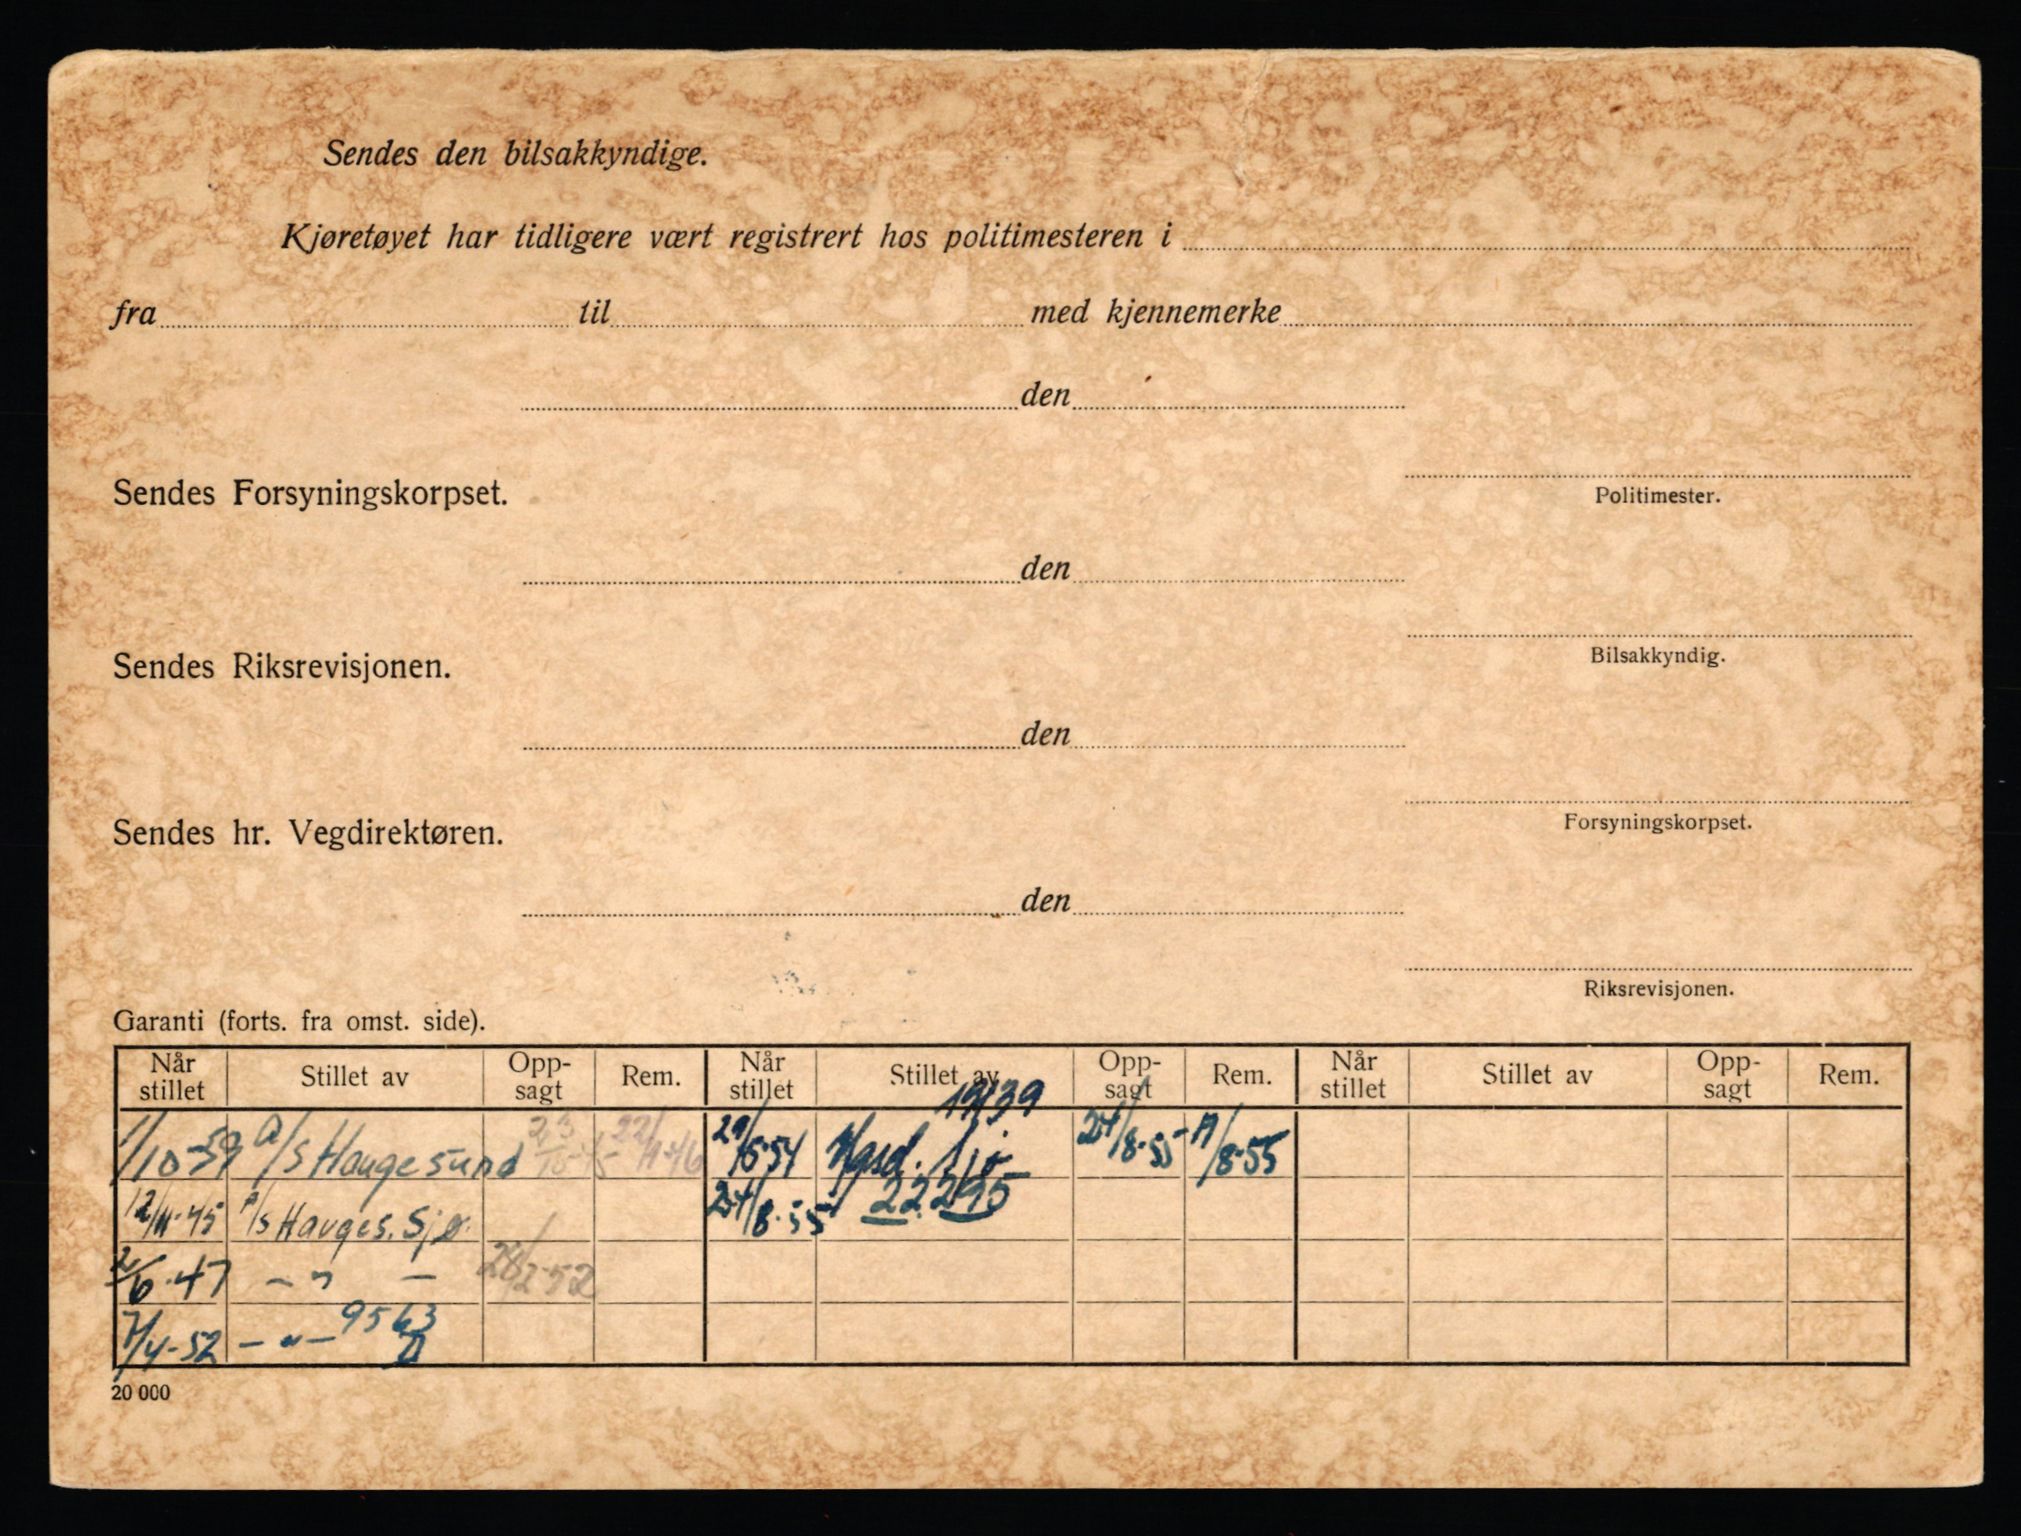 Sendes den bilsakkyndige.
Kjøretøyet har tidligere vært registrert hos politimesteren i
fra til med kjennemerke
den
Sendes Forsyningskorpset.
Politimester.
den
Bilsakkyndig.
Sendes Riksrevisjonen.
den
Forsyningskorpset.
Sendes hr. Vegdirektøren.
den
Riksrevisjonen.
Garanti (forts. fra omst. side).
Når stillet Stillet av Opp-sagt Rem. Når stillet Stillet av Opp-sagt Rem. Når stillet Stillet av Opp-sagt Rem.
1/10-39 A/S Haugesund 22/1-46 29/5-54 Hgsd. Sjø 24/8-55 8-55
12/11-45 A/S Hauges. Sjø. 24/8-55 22295
2/6-47 - " - 28/2-52
7/4-52 - " - 9563
20 000